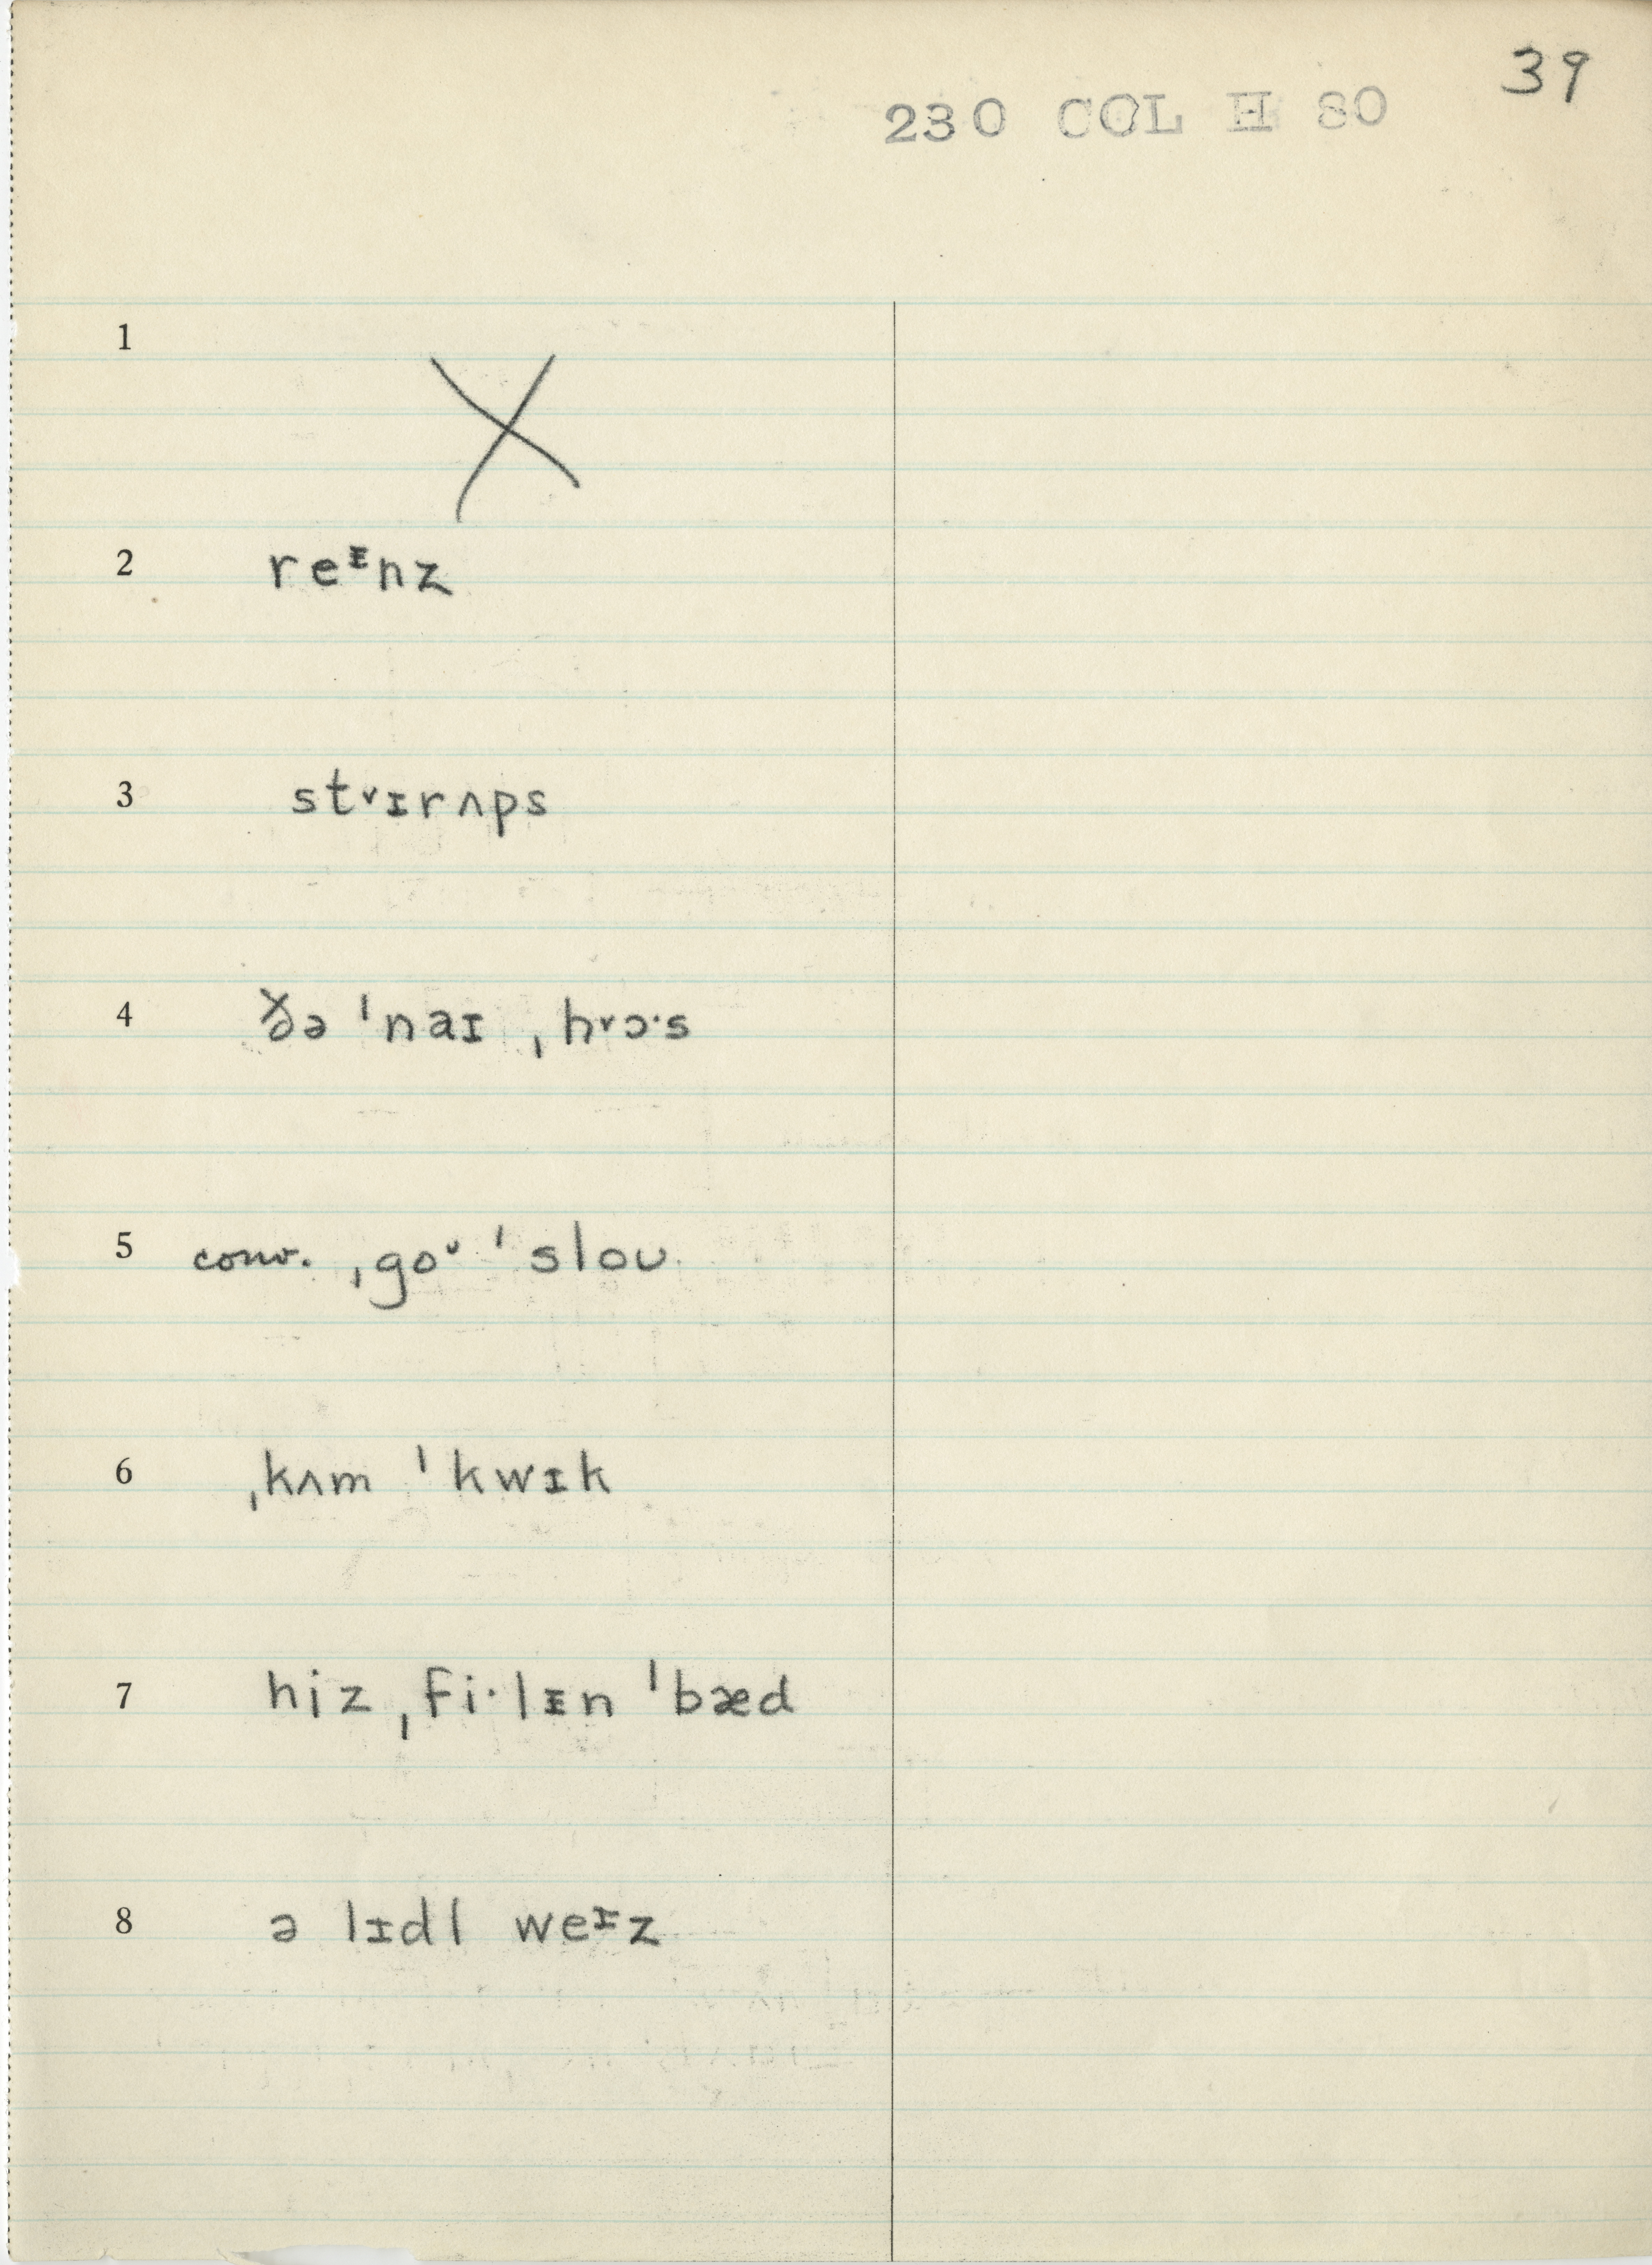 39
230 COL H 80
1
X
2 reᵻnz
3 st˅ɪrʌps
4 ðə ˈnaɪ ˌh˅ɔ·s
5 conv. ˌgoᶷ ˈsloʊ
6 ˌkʌm ˈkwɪk
7 hiz ˌfi·lᵻn ˈbæd
8 ə lɪdl weᶦz